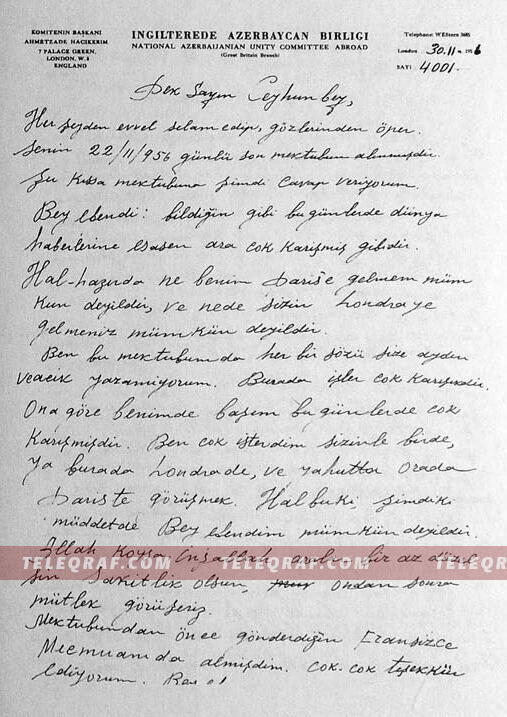 KOMİTENİN BAŞKANI
AHMETZADE HACIKERİM
7 PALACE GREEN,
LONDON, W.8
ENGLAND
INGILTEREDE AZERBAYCAN BIRLIGI
NATIONAL AZERBAIJANIAN UNITY COMMITTEE ABROAD
(Great Britain Branch)
Telephone: WEStern 3685
London 30.11 1956
SAYI 4001.
Pek Sayın Ceyhun bey,
Her şeyden evvel selam edip, gözlerinden öper.
Senin 22/11/956 günlü son mektubun alınmışdır.
Şu kıssa mektubuna şimdi cavap veriyorum.
Bey efendi: bildiğin gibi bu günlerde dünya
haberlerine esasen ara cok karışmış gibidir.
Hal-hazırda ne benim Parise gelmem müm
kun deyildir, ve nede sizin Londraye
gelmeniz mümkün deyildir.
Ben bu mektubumda her bir sözü size aydın
veacik yazamiyorum. Burada işler cok karışıkdir.
Ona göre benimde başım bu günlerde cok
karışmişdir. Ben cok isterdim sizinle birde,
ya burada Londrade, ve yahutta orada
Pariste görüşmek. Halbuki, şimdiki
müddetde Bey efendim mümkün deyildir.
Allah koysa inşallah bir az düzel
sin sakitlik olsun, ondan sonra
mütlek görüşeriz.
Mektubundan önce gönderdiğin Fransizce
Mecmuani da almişdim. cok-cok teşekkür
ediyorum.
TELEQRAF.COM TELEQRAF.COM TELEQRAF.COM